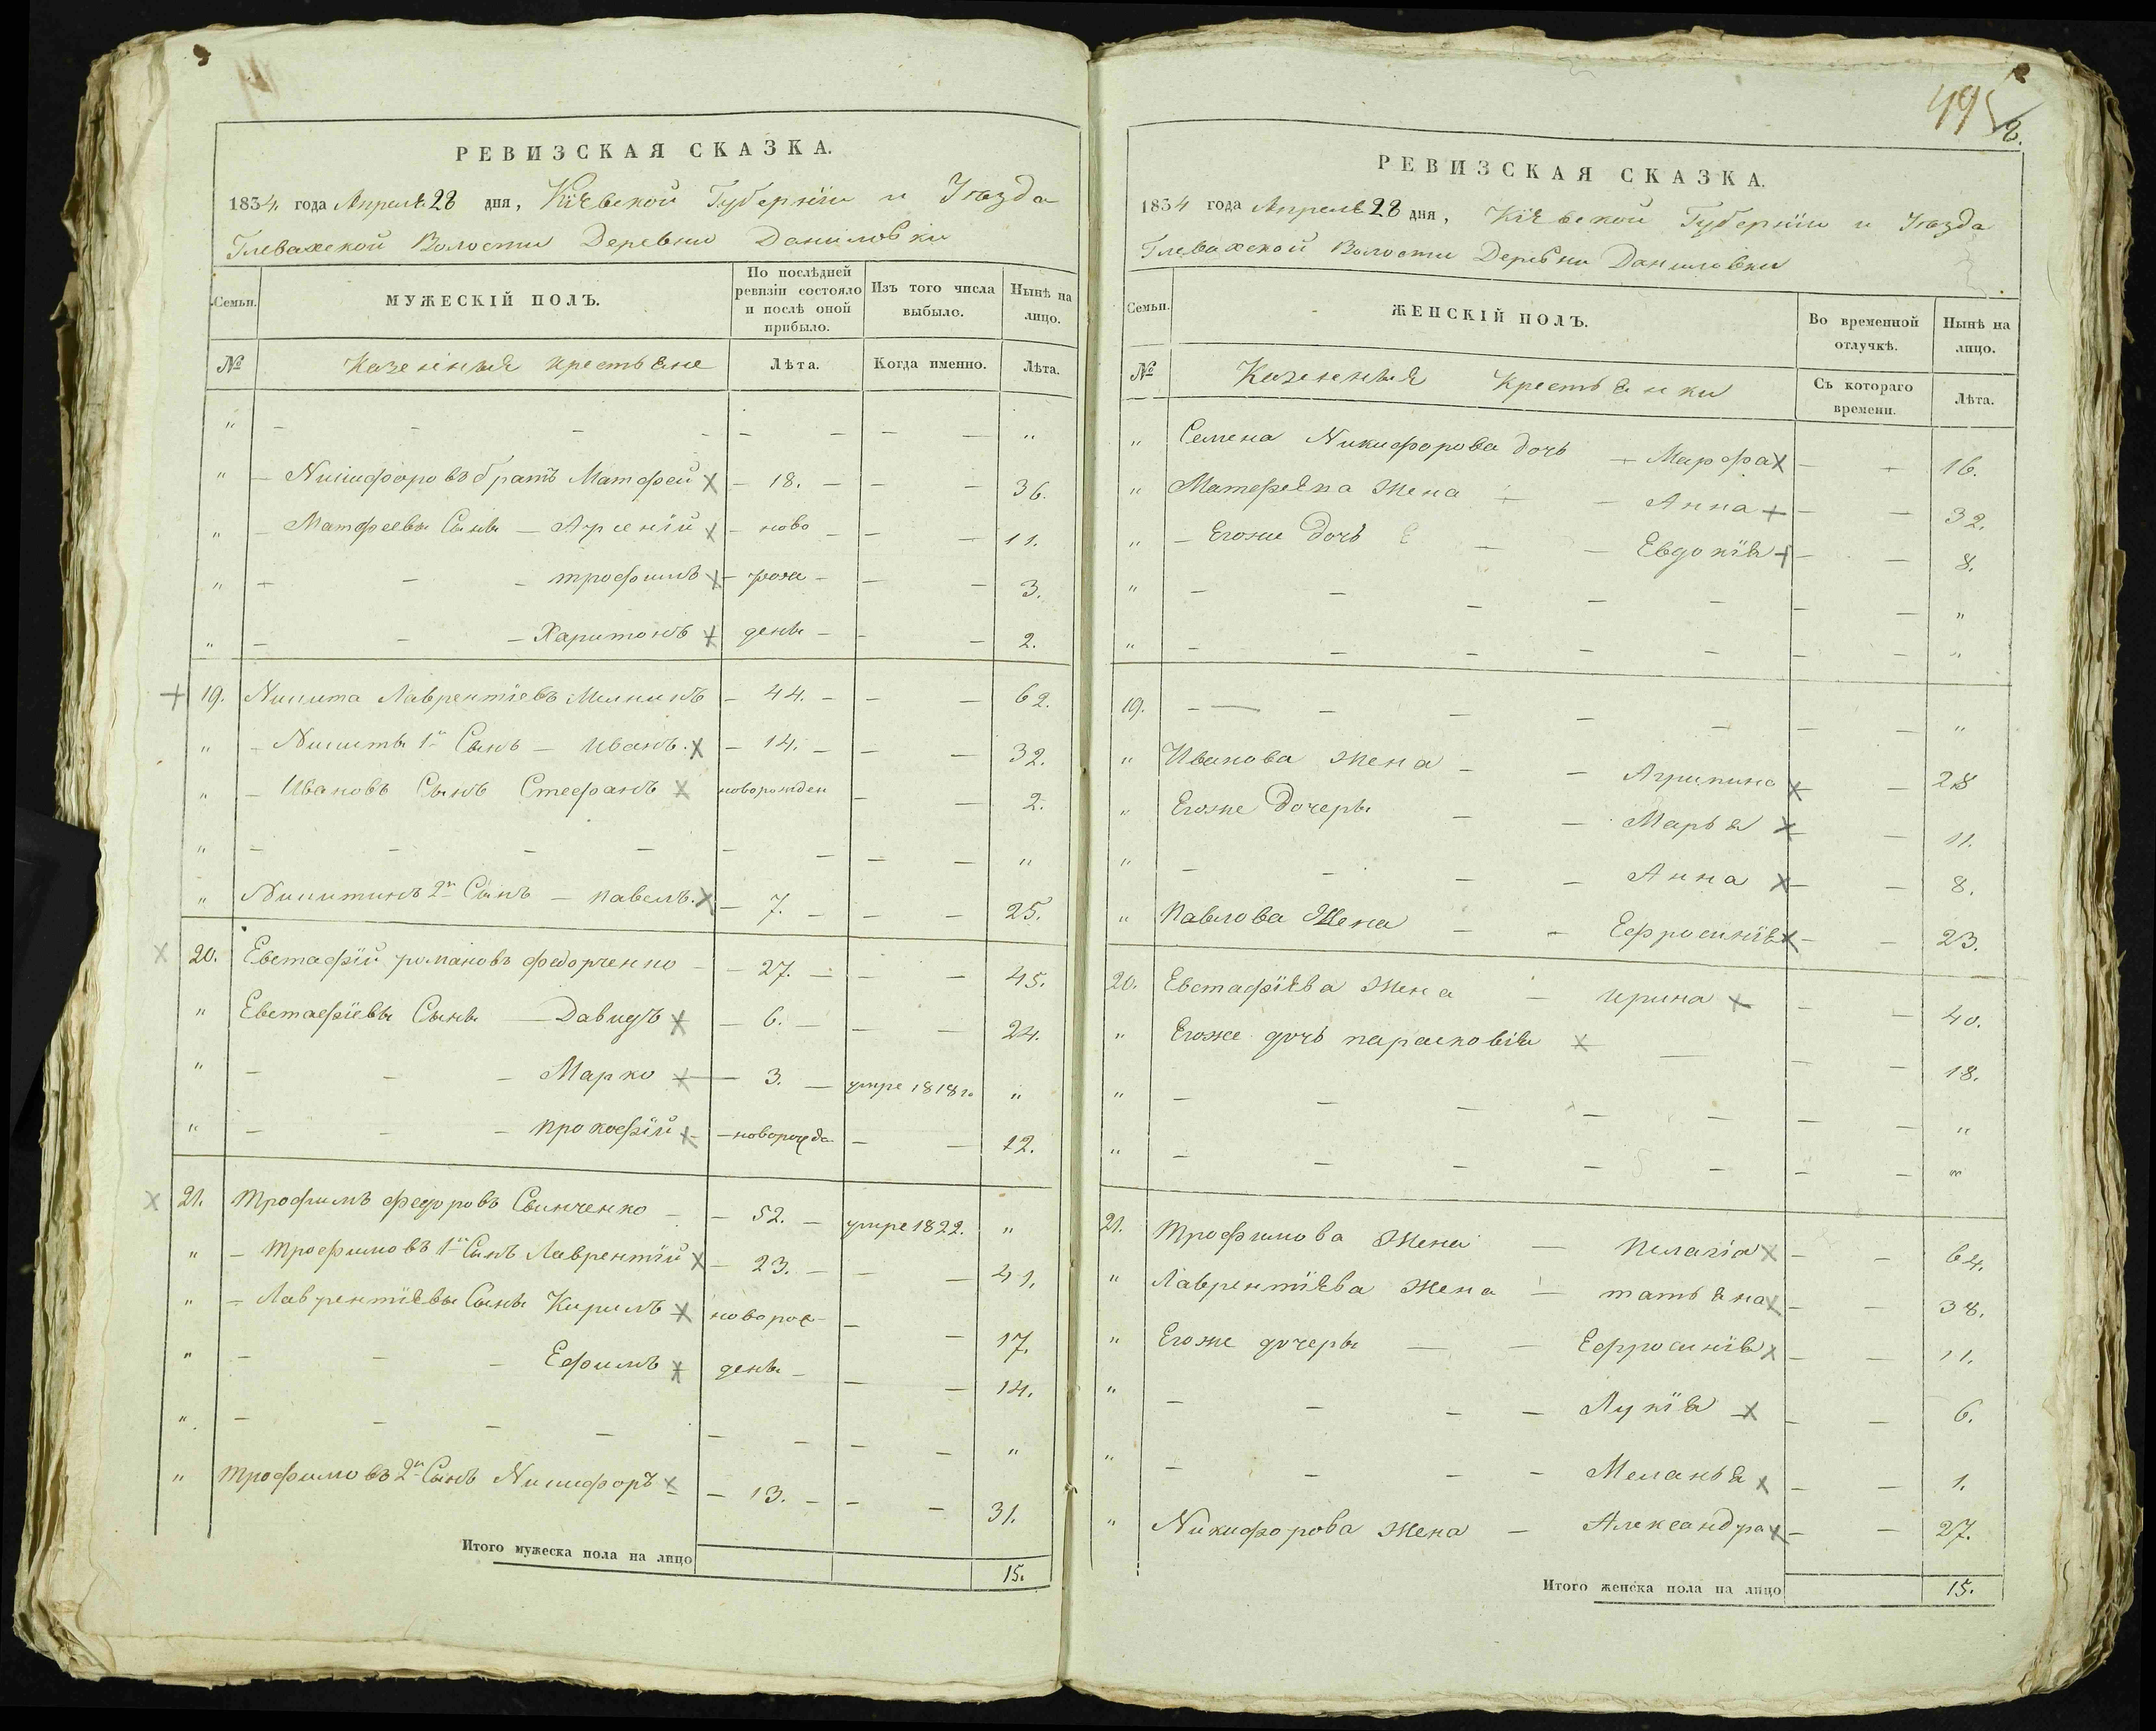 РЕВИЗСКАЯ СКАЗКА.
1834. года Апреля 28 дня, Кіевской Губерніи и Уѣзда
Глевахской Волости Деревни Даниловки
Семьи.
МУЖЕСКІЙ ПОЛЪ.
По послѣдней ревизіи состояло и послѣ оной прибыло.
Изъ того числа выбыло.
Нынѣ на лицо.
№ Казенныя крестьяне Лѣта. Когда именно. Лѣта.
" - - - - - - - - "
" - Никифоровъ братъ Матфей - 18. - - - 36.
" - Матфеевы Сыны - Арсеній - ново - - - 11.
" - - - трофимъ - рож - - - 3.
" - - - Харитонъ дены - - - 2.
19. Никита Лаврентіевъ Милникъ - 44. - - - 62.
" - Никиты 1й Сынъ - Иванъ. - 14. - - - 32.
" - Ивановъ Сынъ Стефанъ новорожден - - 2.
" - - - - - - - - "
" Никитинъ 2й Сынъ - павелъ. - 7. - - - 25.
20. Евстафій романовъ федорченко - - 27. - - - 45.
" Евстафіевы Сыны - Давидъ - 6. - - - 24.
" - - - Марко - 3. - умре 1818го "
" - - - прокофій - новорожде - - 12.
21. трофимъ федоровъ Свинченко - - 52. - умре 1822. "
" - трофимовъ 1й Сынъ Лаврентій - 23. - - - 41.
" - Лаврентіевы Сыны Кирилъ новорож - - 17.
" - - - Ефимъ дены - - - 14.
" - - - - - - - - "
" трофимовъ 2й Сынъ Никифоръ - 13. - - - 31.
Итого мужеска пола на лицо 15.
495
8.
РЕВИЗСКАЯ СКАЗКА.
1834 года Апреля 28 дня, Кіевской Губерніи и Уѣзда
Глевахской Волости Деревни Даниловки
Семьи.
ЖЕНСКІЙ ПОЛЪ.
Во временной отлучкѣ.
Нынѣ на лицо.
№ Казенныя Крестьянки Съ котораго времени. Лѣта.
" Семена Никифорова дочь - Марфа - - 16.
" Матфеева жена - - Анна - - 32.
" - Егоже дочь - - Евдокія - - 8.
" - - - - - - - "
" - - - - - - - "
19. - - - - - - - "
" Иванова жена - - Агрипина - - 28
" Егоже дочеры - - Марья - - 11.
" - - - - Анна - - 8.
" павлова Жена - - Ефросинія - - 23.
20. Евстафіева жена - ирина - - 40.
" Егоже дочь парасковія - - - 18.
" - - - - - - - "
" - - - - - - - "
21. трофимова жена - пелагія - - 64.
" Лаврентіева жена - татьяна - - 38.
" Егоже дочеры - - Ефросинія - - 11.
" - - - - Лукія - - 6.
" - - - - Меланья - - 1.
" Никифорова жена - Александра - - 27.
Итого женска пола на лицо 15.